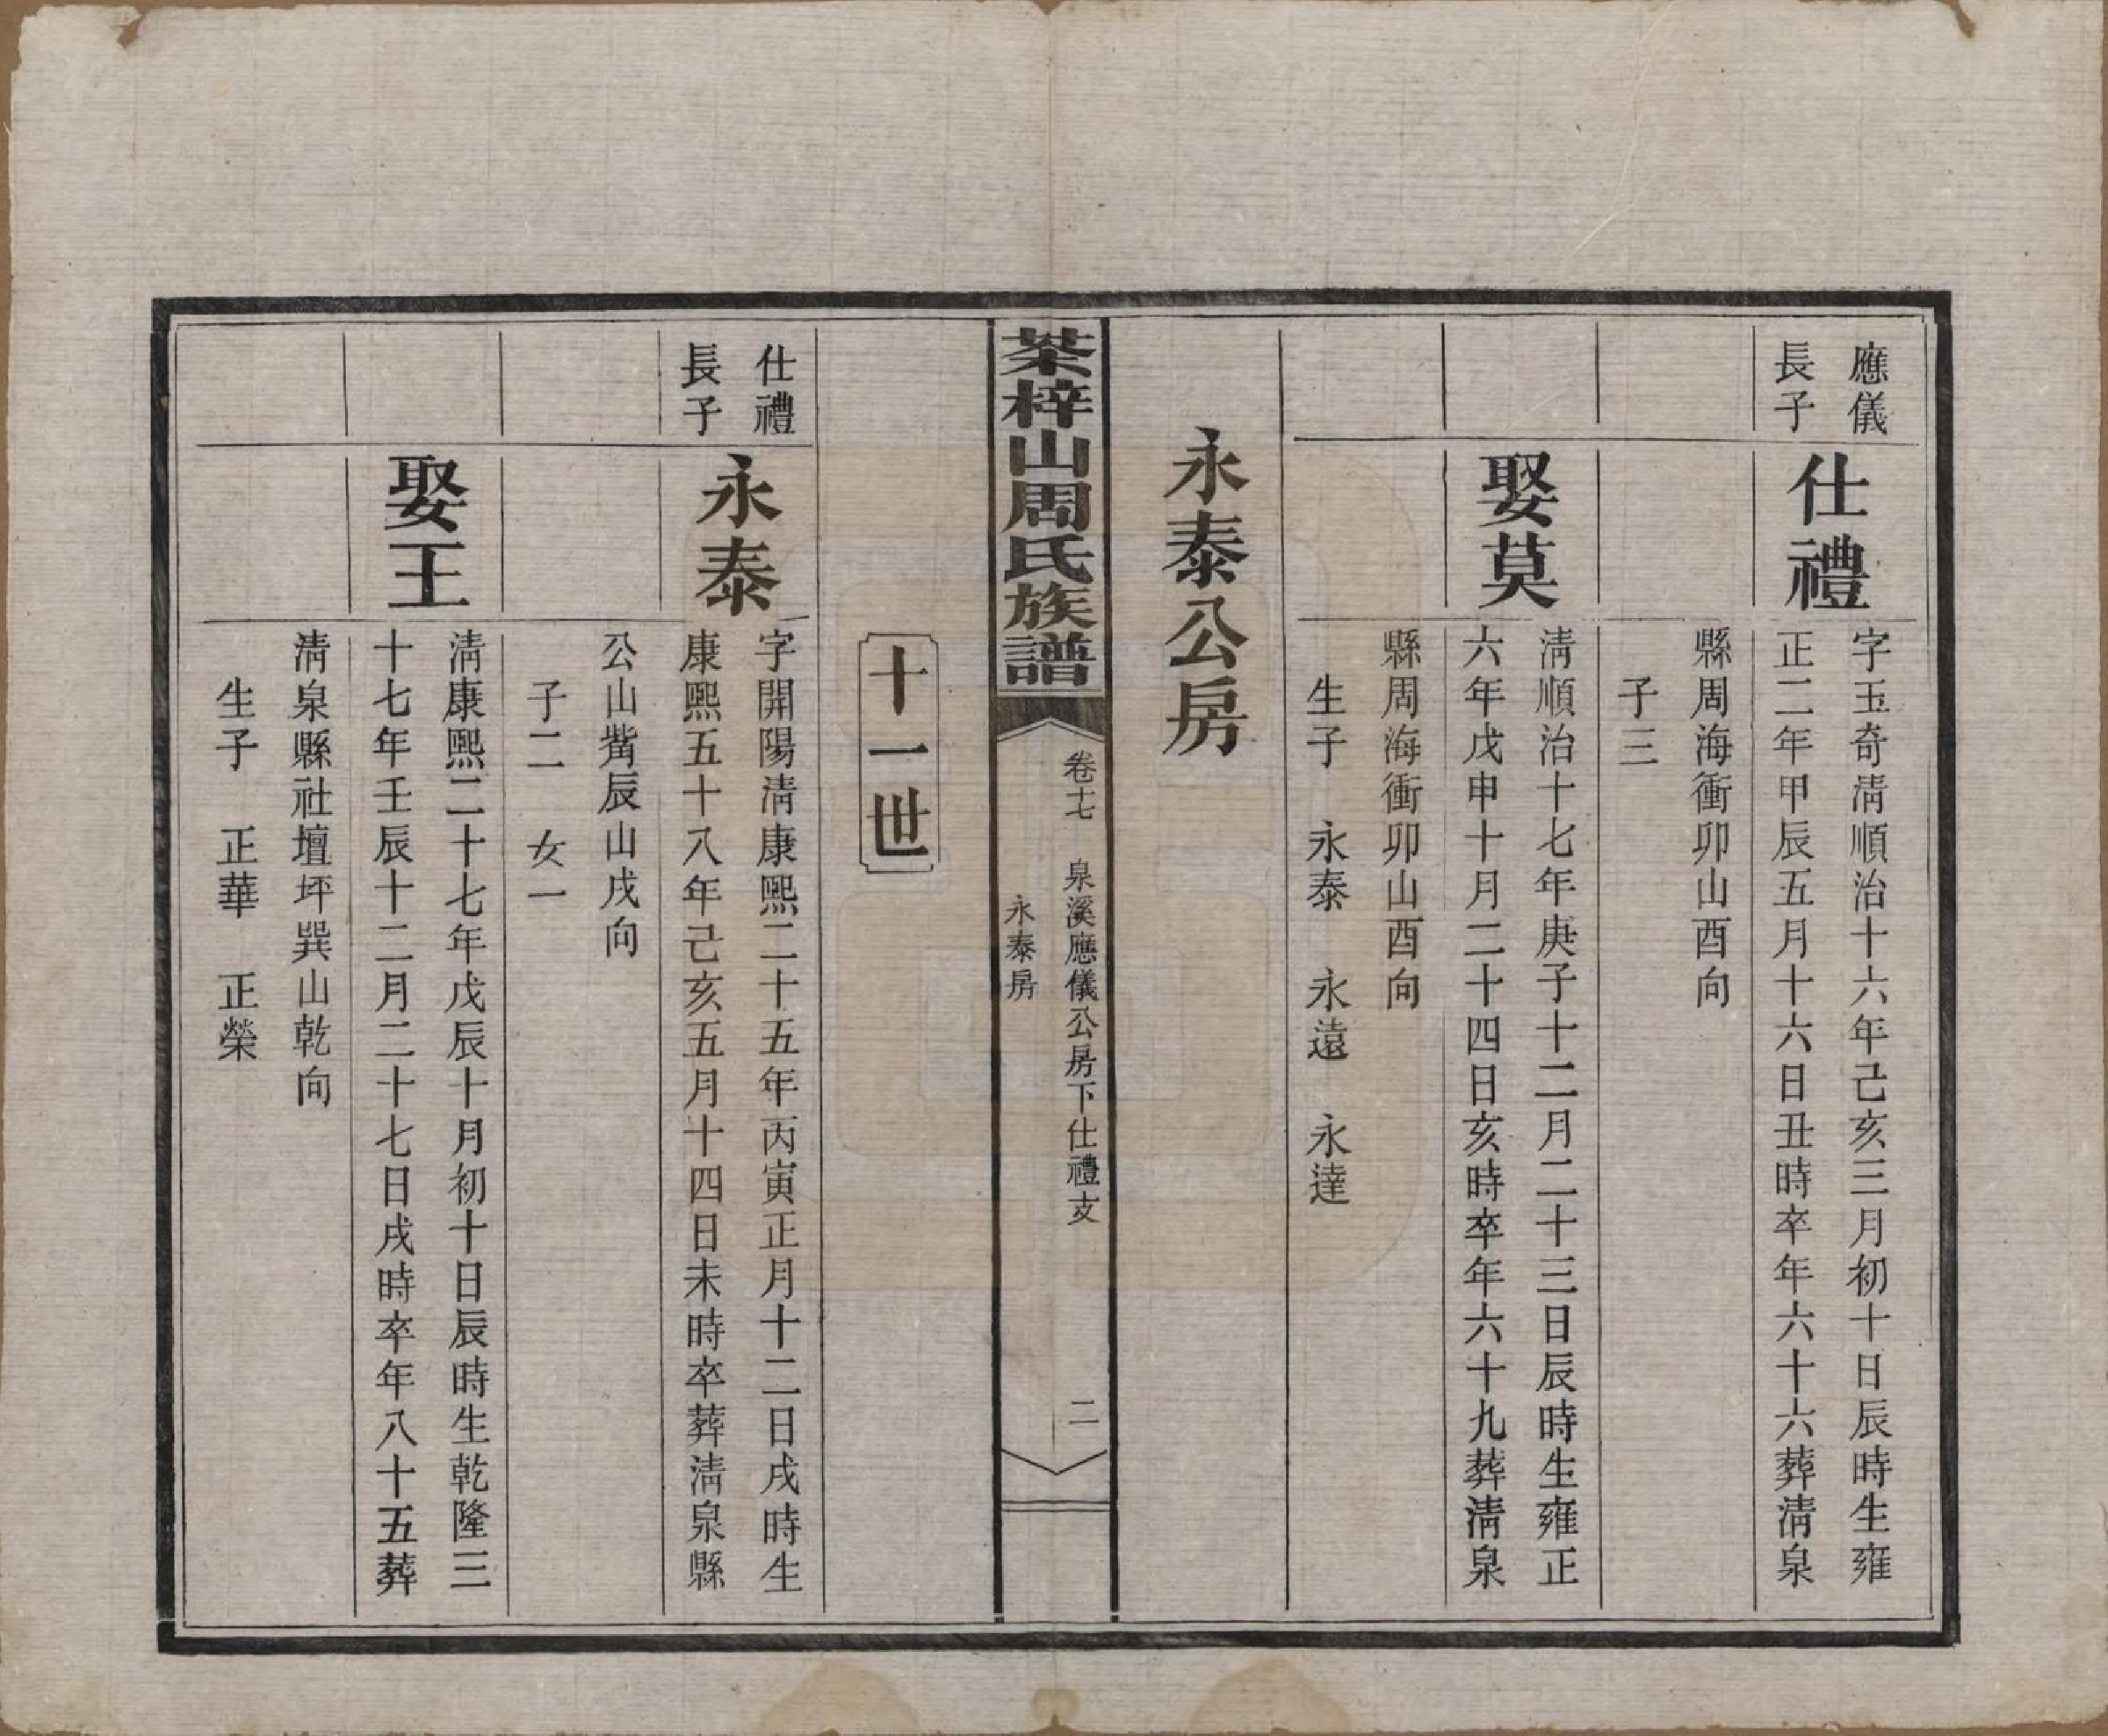 應儀
長子
仕禮
字玉奇淸順治十六年己亥三月初十日辰時生雍
正二年甲辰五月十六日丑時卒年六十六葬淸泉
縣周海衝卯山酉向
子三
娶莫
淸順治十七年庚子十二月二十三日辰時生雍正
六年戊申十月二十四日亥時卒年六十九葬淸泉
縣周海衝卯山酉向
生子 永泰 永遠 永達
永泰公房
茶梓山周氏族譜
卷十七 泉溪應儀公房下仕禮支
永泰房
二
十一世
仕禮
長子
永泰
字開陽淸康熙二十五年丙寅正月十二日戌時生
康熙五十八年己亥五月十四日未時卒葬淸泉縣
公山觜辰山戌向
子二 女一
娶王
淸康熙二十七年戊辰十月初十日辰時生乾隆三
十七年壬辰十二月二十七日戌時卒年八十五葬
淸泉縣社壇坪巽山乾向
生子 正華 正榮